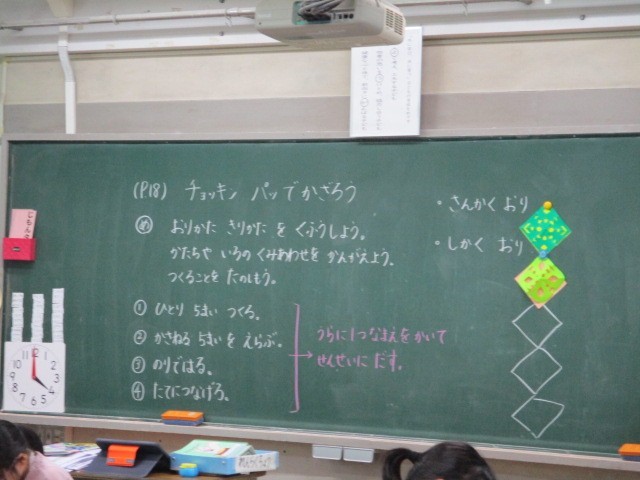 (P18) チョッキン パッでかざろう
め おりかた きりかた を くふうしよう。
かたちや いろの くみあわせを かんがえよう。
つくることを たのしもう。
① ひとり 5まい つくる。
② かさねる 5まいを えらぶ。
③ のりではる。
④ たてにつなげる。
うらに1つなまえをかいて
せんせいに だす。
・さんかく おり
・しかく おり
12
11 1
10 2
9 3
8 4
7 5
6